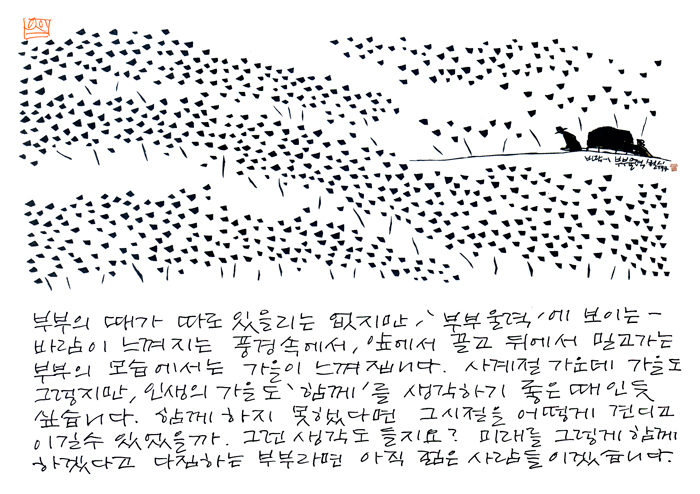 바람이 부부울력 철수 94
부부의 때가 따로 있을리는 없지만, '부부울력'에 보이는 -
바람이 느껴지는 풍경속에서, 앞에서 끌고 뒤에서 밀고가는
부부의 모습에서는 가을이 느껴집니다. 사계절 가운데 가을도
그렇지만, 인생의 가을도 '함께'를 생각하기 좋은 때인듯
싶습니다. 함께 하지 못했다면 그시절을 어떻게 견디고
이길수 있었을까. 그런 생각도 들지요? 미래를 그렇게 함께
하겠다고 다짐하는 부부라면 아직 젊은 사람들이겠습니다.